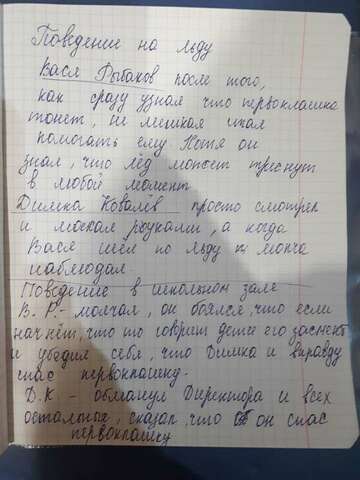 Поведение на льду
Вася Рыбаков после того,
как сразу узнал что первоклашка
тонет, не мешкая стал
помогать ему. Хотя он
знал, что лёд может треснуть
в любой момент
Димка Ковалёв просто смотрел
и махал руками, а когда
Вася шёл по льду молча
наблюдал.
Поведение в школьном зале
В. Р. - молчал, он боялся, что если
начнёт, что то говорить дети его засмеют
и убедил себя, что Димка и вправду
спас первоклашку.
Д.К - обманул Директора и всех
остальных, сказал, что он спас
первоклашку